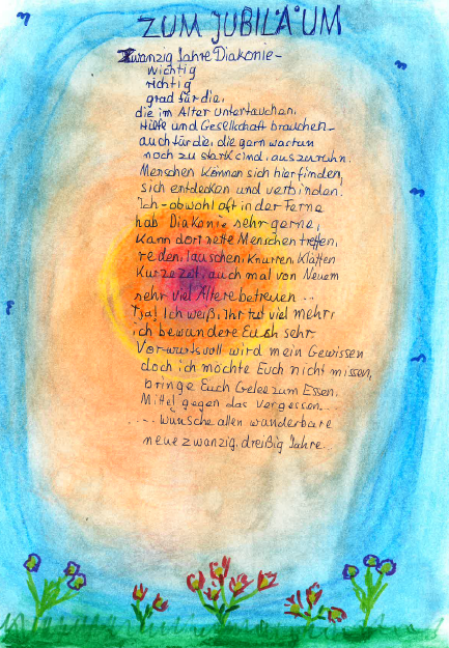 ZUM JUBILÄUM
Zwanzig Jahre Diakonie-
wichtig
richtig
grad für die,
die im Alter untertauchen,
Hilfe und Gesellschaft brauchen-
auch für die, die gern warten
noch zu stark sind, auszuruhn.
Menschen können sich hier finden,
sich entdecken und verbinden.
Ich - obwohl oft in der Ferne
hab Diakonie sehr gerne,
Kann dort nette Menschen treffen,
reden, lauschen, Knurren, Kläffen
Kurze Zeit, auch mal von Neuem
sehr viel Ältere betreuen ...
Tja! Ich weiß, Ihr tut viel mehr,
ich bewundere Euch sehr.
Vorwurfsvoll wird mein Gewissen
doch ich möchte Euch nicht missen,
bringe Euch Gelee zum Essen.
Mittel gegen das Vergessen...
... wünsche allen wunderbare
neue zwanzig, dreißig Jahre.